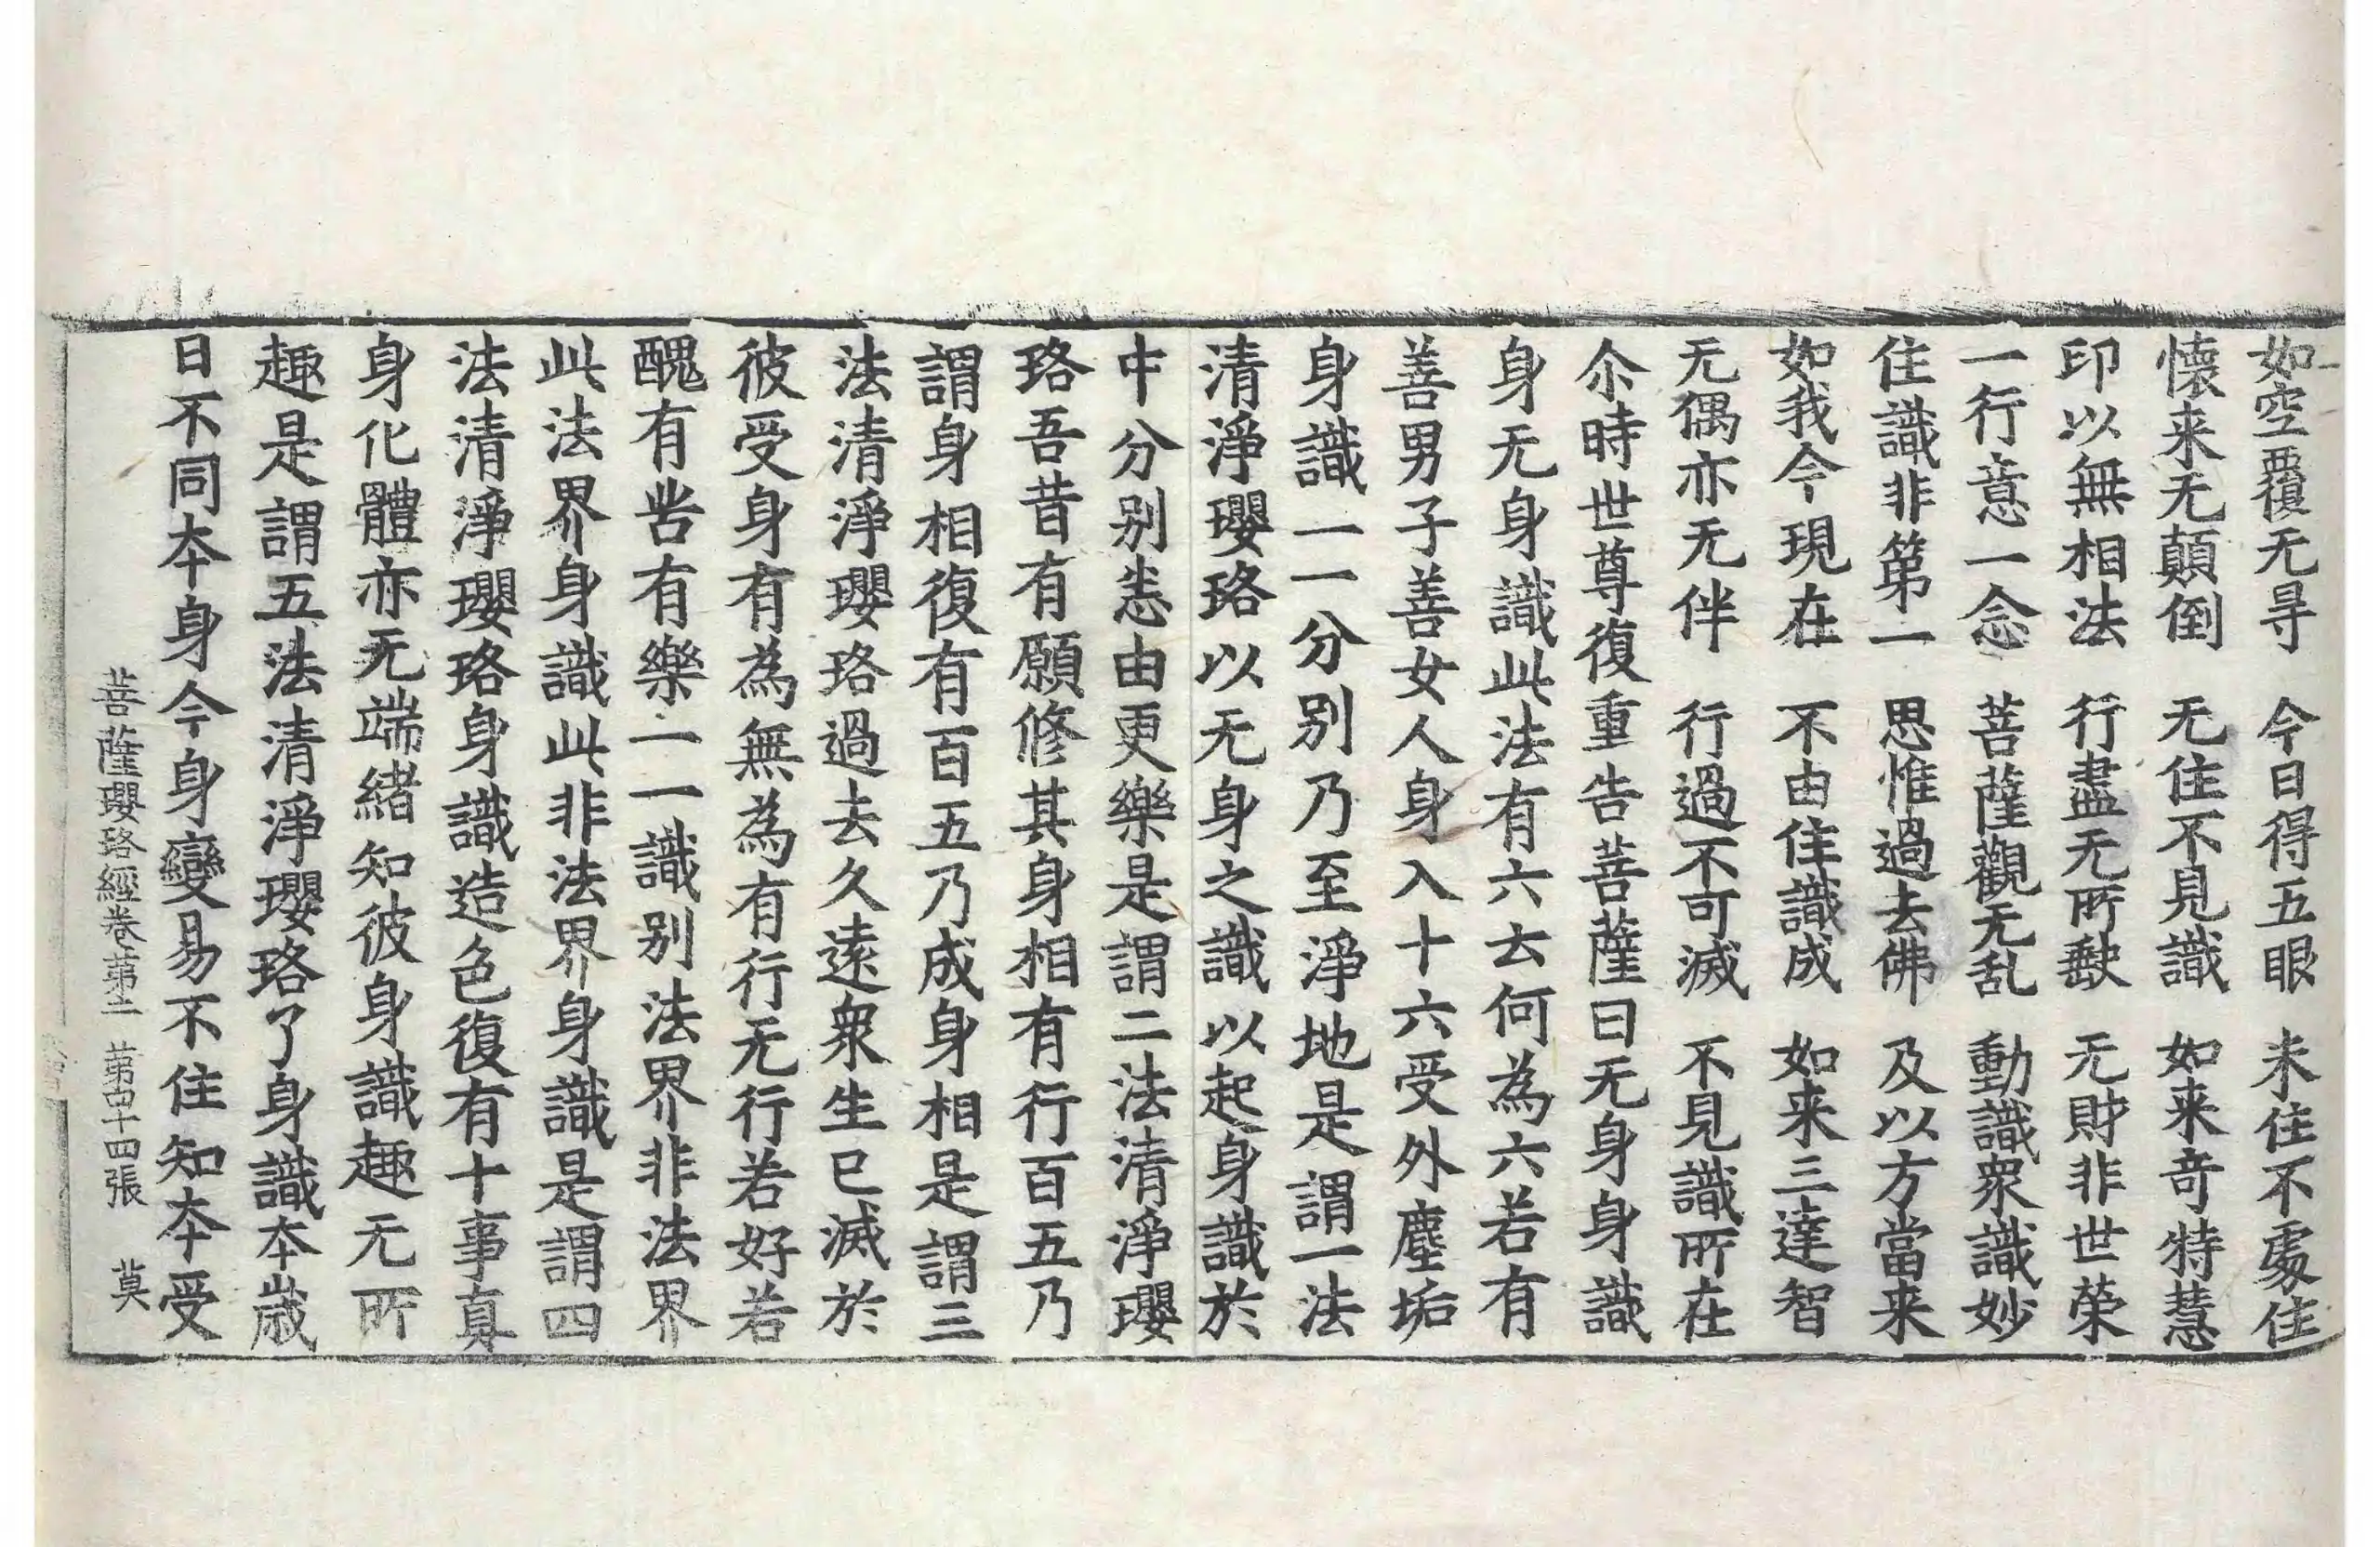 如空覆无㝵　今日得五眼　未住不處住
懷来无顛倒　无住不見識　如来竒特慧
印以無相法　行盡无所猒　无財非世榮
一行意一念　菩薩觀无乱　動識衆識妙
住識非第一　思惟過去佛　及以方當来
如我今現在　不由住識成　如来三達智
无偶亦无伴　行過不可滅　不見識所在
尒時世尊復重告菩薩曰无身身識
身无身識此法有六云何為六若有
善男子善女人身入十六受外塵垢
身識一一分別乃至淨地是謂一法
清淨瓔珞以无身之識以起身識於
中分別恚由更樂是謂二法清淨瓔
珞吾昔有願修其身相有行百五乃
謂身相復有百五乃成身相是謂三
法清淨瓔珞過去久遠衆生已滅於
彼受身有為無為有行无行若好若
醜有苦有樂一一識別法界非法界
此法界身識此非法界身識是謂四
法清淨瓔珞身識造色復有十事真
身化體亦无端緒知彼身識趣无所
趣是謂五法清淨瓔珞了身識夲嵗
日不同夲身今身變易不住知夲受
菩薩瓔珞經卷第二　第十四張　莫